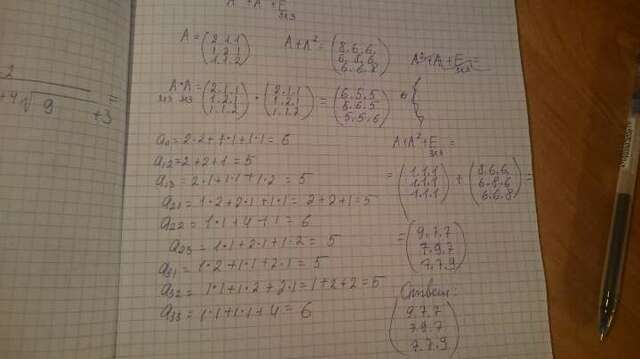 A² + A + E
3x3
A = (2.1.1
1.2.1
1.1.2)
A+A² = (8.6.6.
6.8.6
6.6.8)
A²+A+E =
3x3
A·A = (2.1.1
1.2.1
1.1.2) · (2.1.1
1.2.1
1.1.2) = (6.5.5
5.6.5
5.5.6)
3x3 3x3
a₁₁ = 2·2+1·1+1·1 = 6
a₁₂ = 2+2+1 = 5
a₁₃ = 2·1+1·1+1·2 = 5
a₂₁ = 1·2+2·1+1·1 = 2+2+1 = 5
a₂₂ = 1·1+4+1 = 6
a₂₃ = 1·1+2·1+1·2 = 5
a₃₁ = 1·2+1·1+2·1 = 5
a₃₂ = 1·1+1·2+2·1 = 1+2+2 = 5
a₃₃ = 1·1+1·1+4 = 6
A+A²+E =
3x3
= (1.1.1
1.1.1
1.1.1) + (8.6.6
6.8.6
6.6.8) =
= (9.7.7
7.9.7
7.7.9)
Ответ:
(9.7.7
7.9.7
7.7.9)
2
√9 +3 =